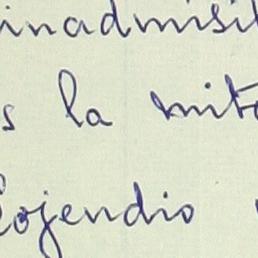 inadmisi
s la mit
ojendio